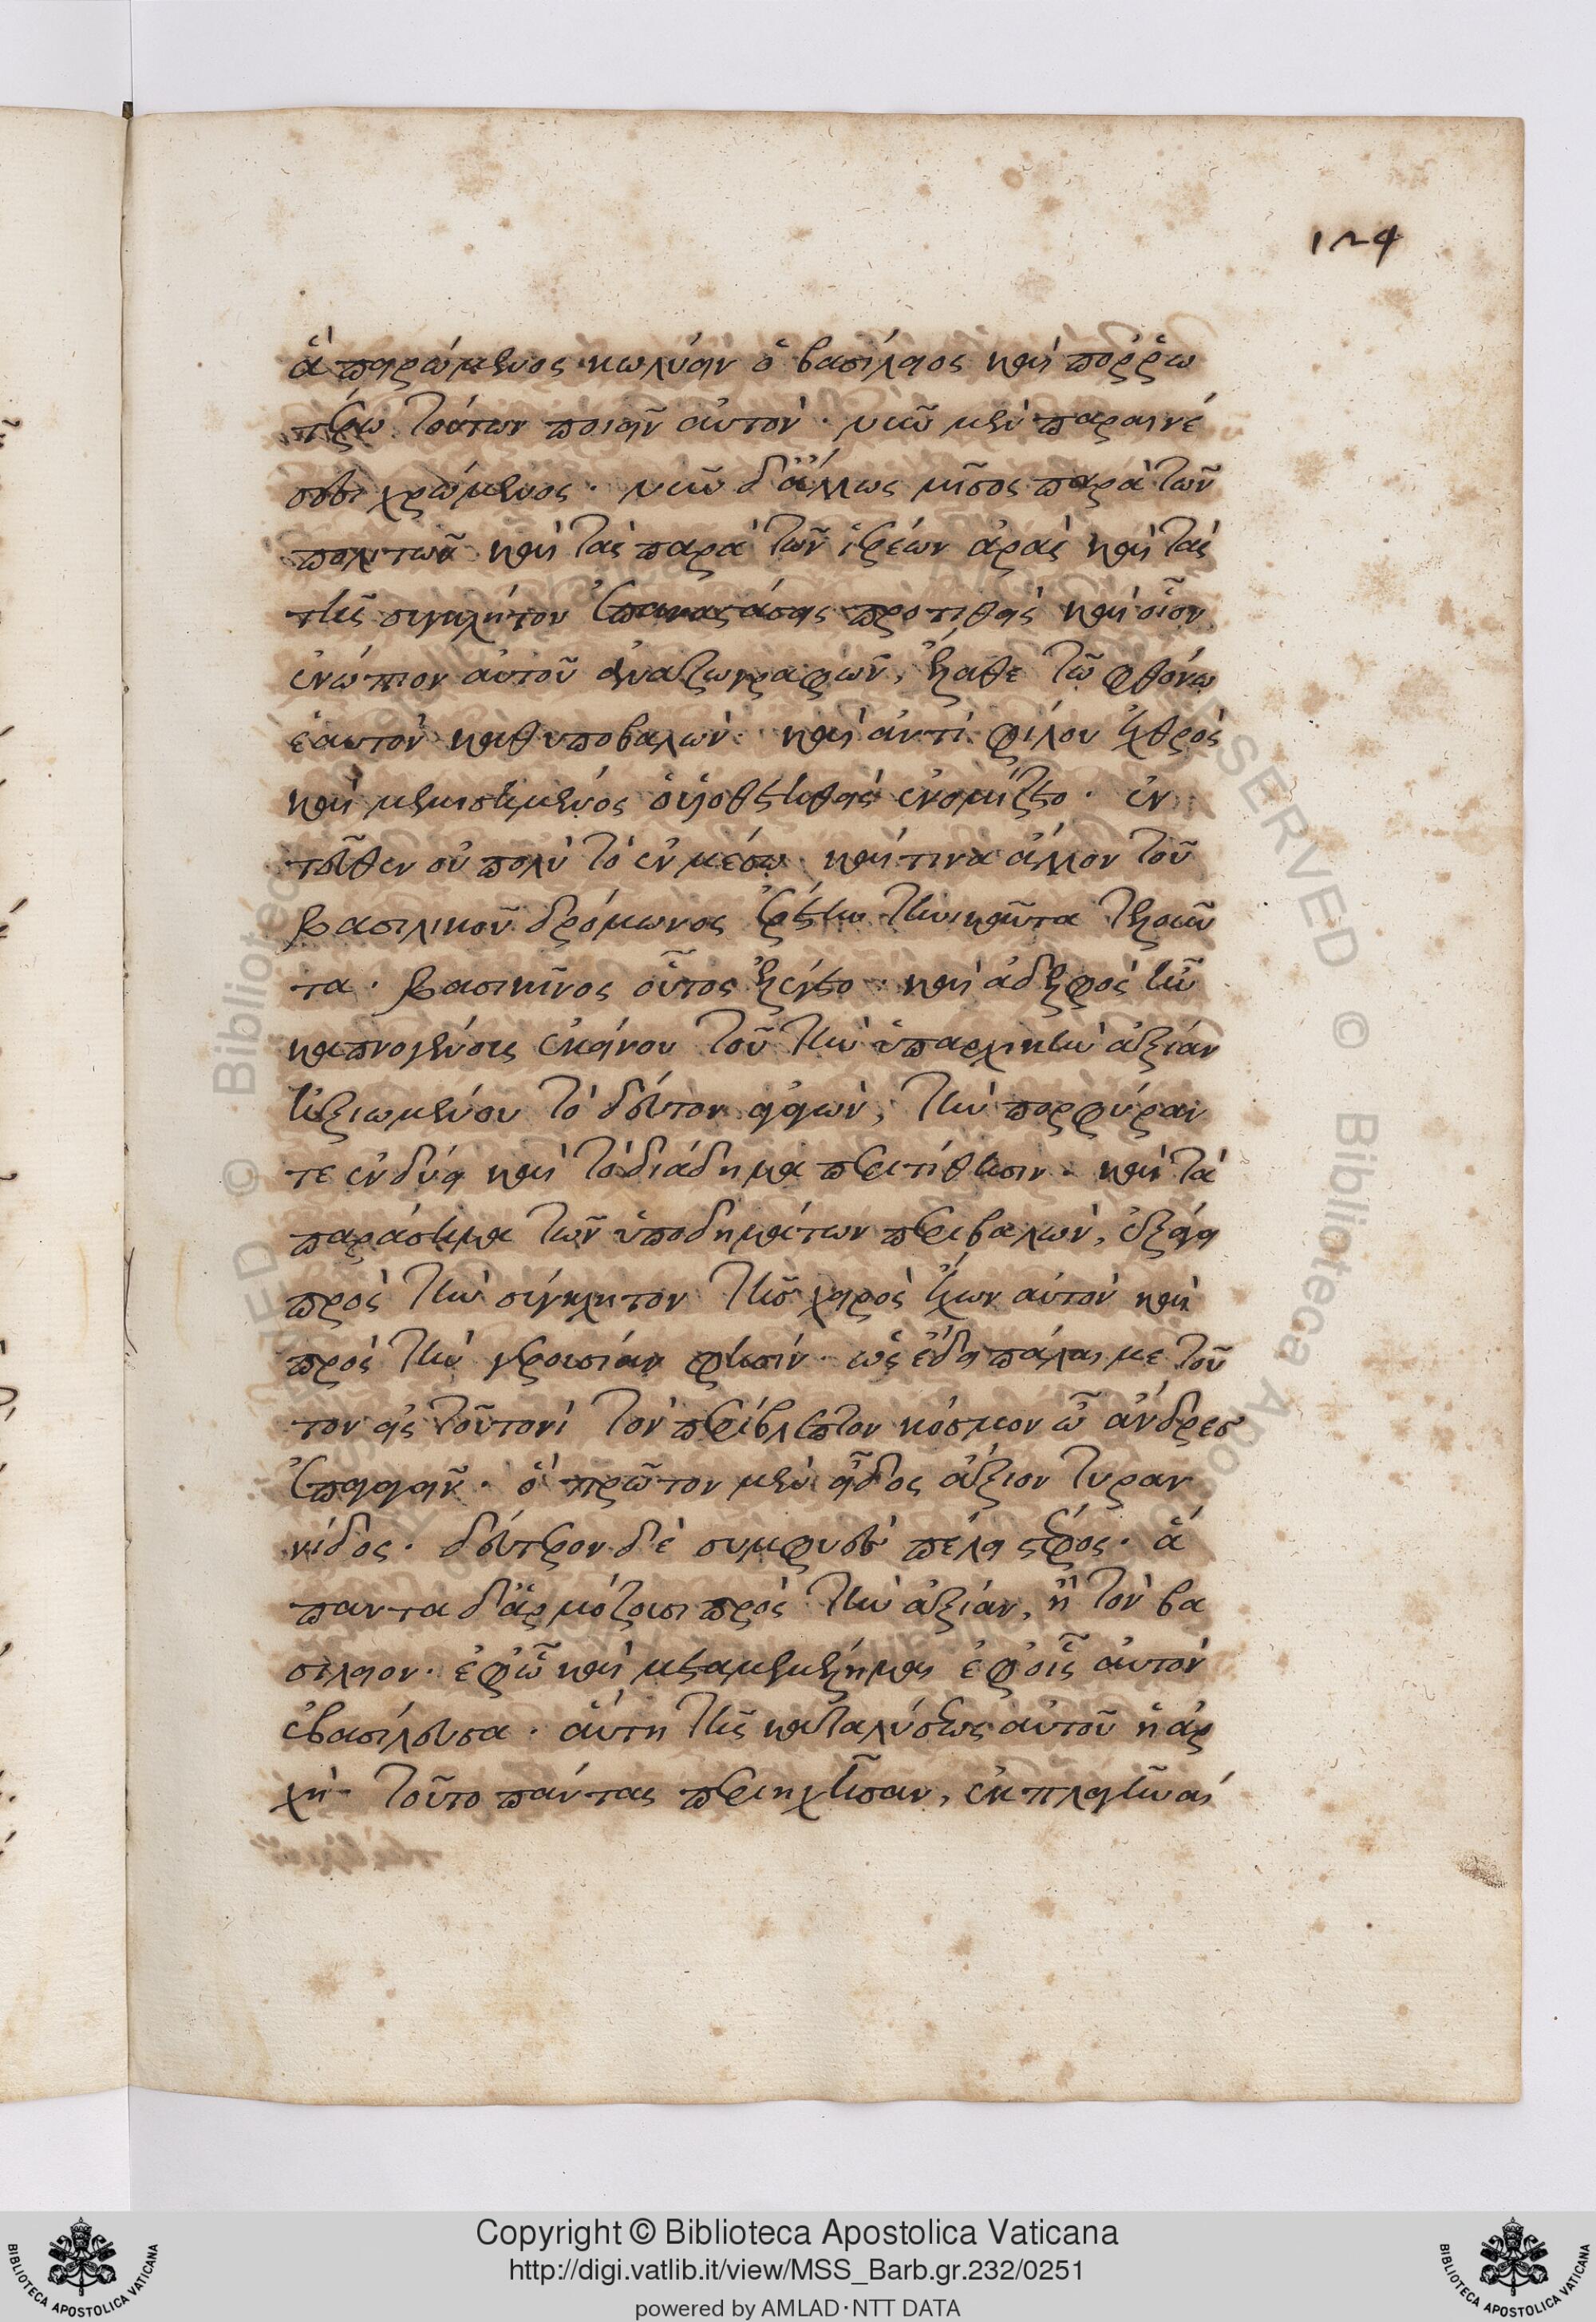 124
ἃ πειρώμενος κωλύειν ὁ βασίλειος καὶ πορρω
τέρω τούτων ποιεῖν αὐτὸν· νῦν μὲν παραινέ
σεσι χρώμενος· νῦν δ' ἄλλως μῖσος παρὰ τῶν
πολιτῶν καὶ τὰς παρὰ τῶν ἱερέων ἀρὰς καὶ τὰς
τῆς συγκλήτου ἐπαναστάσεις προτιθεὶς καὶ οἷον
ἐνώπιον αὐτοῦ ἀναζωγραφῶν, ἔλαθε τῷ φθόνῳ
ἑαυτὸν καθυποβαλὼν· καὶ ἀντὶ φίλου ἐχθρὸς
καὶ μεμισημένος ὁ υἱοθετηθεὶς ἐνομίζετο· ἐν
τεῦθεν οὐ πολὺ τὸ ἐν μέσῳ καί τινα ἄλλον τοῦ
βασιλικοῦ δρόμωνος ἐρέτην τηνικαῦτα τελοῦν
τα· βασικῖνος οὗτος ἐλέγετο· καὶ ἀδελφὸς ἦν
καπνογένους ἐκείνου τοῦ τὴν ὑπαρχικὴν ἀξίαν
ἠξιωμένου τὸ δεύτερον ἀγαγὼν, τὴν πορφύραν
τε ἐνδύει καὶ τὸ διάδημα περιτίθησιν· καὶ τὰ
παράσημα τῶν ὑποδημάτων περιβαλὼν, ἐξάγει
πρὸς τὴν σύγκλητον τῆς χειρὸς ἔχων αὐτὸν καὶ
πρὸς τὴν γερουσίαν φησίν· ὡς ἔδει πάλαι με τοῦ
τον εἰς τουτονὶ τὸν περίβλεπτον κόσμον ὦ ἄνδρες
ἐπαγαγεῖν· ᾧ πρῶτον μὲν εἶδος ἄξιον τυραν
νίδος· δεύτερον δὲ συμφυὲς πέλει στέφος· ἅ
παντα δ' ἁρμόζουσι πρὸς τὴν ἀξίαν, ἢ τὸν βα
σίλειον· ἐφ' ᾧ καὶ μεταμεμέλημαι ἐφ' οἷς αὐτὸν
ἐβασίλευσα· αὕτη τῆς καταλύσεως αὐτοῦ ἡ ἀρ
χὴ· τοῦτο πάντας περιηχῆσαν, ἐκπλαγῆναί
Copyright © Biblioteca Apostolica Vaticana
http://digi.vatlib.it/view/MSS_Barb.gr.232/0251
powered by AMLAD·NTT DATA
BIBLIOTECA APOSTOLICA VATICANA
BIBLIOTECA APOSTOLICA VATICANA